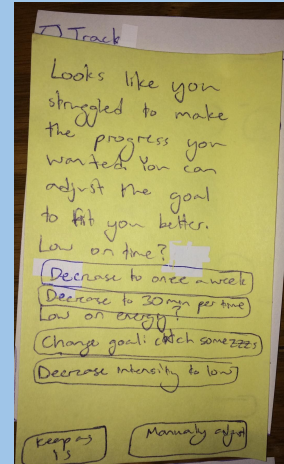 Track
Looks like you
struggled to make
the progress you
wanted. You can
adjust the goal
to fit you better.
Low on time?
Decrease to once a week
Decrease to 30 min per time
Low on energy?
Change goal: catch some zzzs
Decrease intensity to low
Keep as
is
Manually adjust